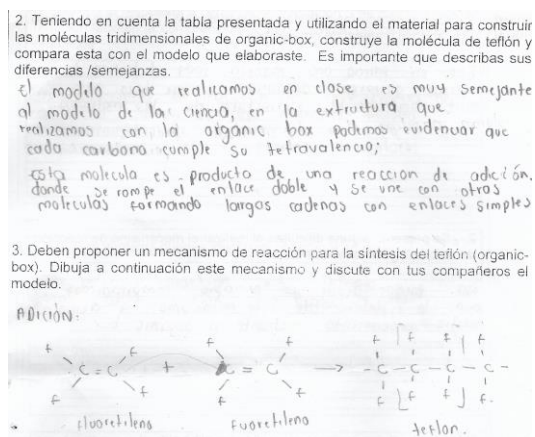 2. Teniendo en cuenta la tabla presentada y utilizando el material para construir
las moléculas tridimensionales de organic-box, construye la molécula de teflón y
compara esta con el modelo que elaboraste. Es importante que describas sus
diferencias /semejanzas.
El modelo que realizamos en clase es muy semejante
al modelo de la ciencia, en la extructura que
realizamos con la organic box podemos evidenciar que
cada carbono cumple su tetravalencia;
esta molecula es producto de una reaccion de adición.
donde se rompe el enlace doble y se une con otras
moleculas formando largas cadenas con enlaces simples
3. Deben proponer un mecanismo de reacción para la síntesis del teflón (organic-
box). Dibuja a continuación este mecanismo y discute con tus compañeros el
modelo.
ADICIÓN:
F F F F F F F F
C = C + C = C → - C - C - C - C -
F F F F F F F F.
fluoretileno fuoretileno teflon.